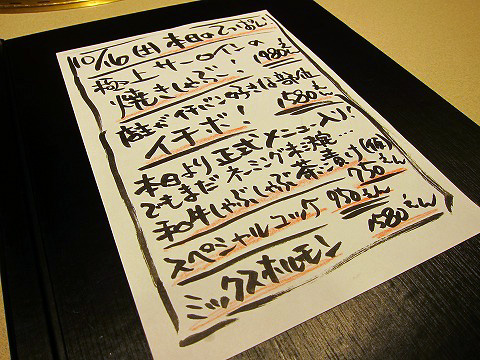 10/6(月)本日てっぱん!
極上サーロインの
焼きしゃぶ! 1980えん
イチバンのうまさは部位
イチボ! 1580えん
本日より正式メニュー入り!
でもまだネーミング未確定…
和牛しゃぶしゃぶ茶漬け(仮)
750えん
スペシャルユッケ 950えん
ミックスホルモン 1580えん